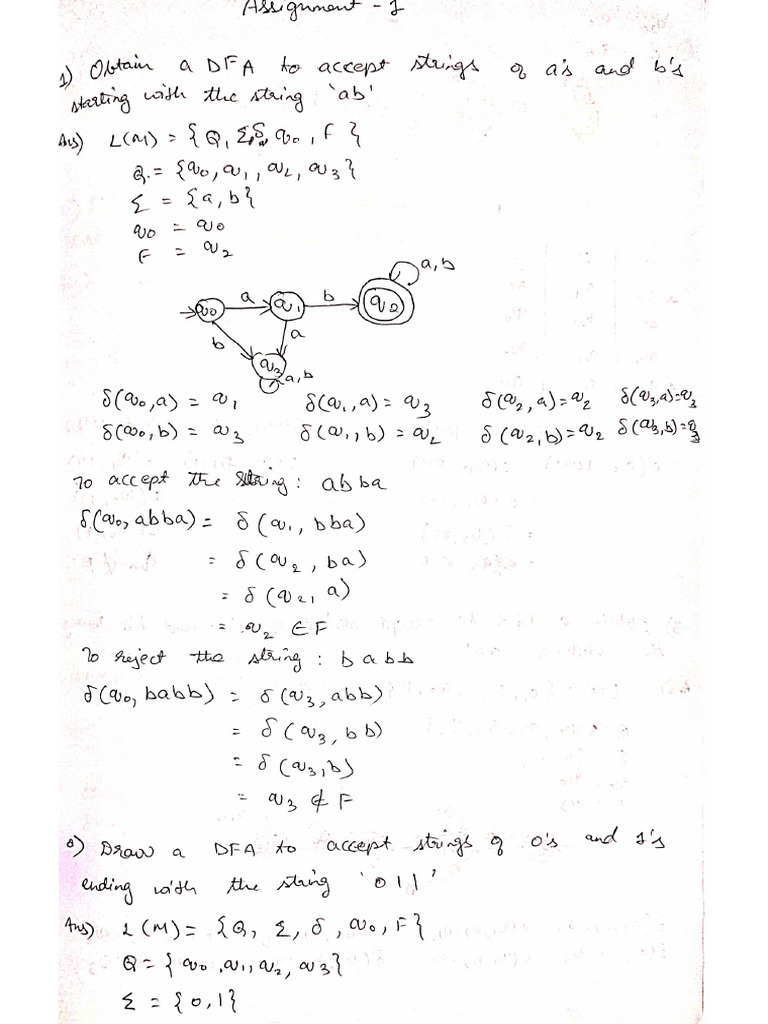 Assignment - 1
1) Obtain a DFA to accept strings of a's and b's
starting with the string 'ab'
Ans) L(M) = {Q, Σ, δ, q0, F}
Q = {q0, q1, q2, q3}
Σ = {a, b}
q0 = q0
F = q2
a, b
q0 a q1 b q2
b a
q3
a, b
δ(q0, a) = q1 δ(q1, a) = q3 δ(q2, a) = q2 δ(q3, a) = q3
δ(q0, b) = q3 δ(q1, b) = q2 δ(q2, b) = q2 δ(q3, b) = q3
To accept the string : abba
δ(q0, abba) = δ(q1, bba)
= δ(q2, ba)
= δ(q2, a)
= q2 ∈ F
To reject the string : babb
δ(q0, babb) = δ(q3, abb)
= δ(q3, bb)
= δ(q3, b)
= q3 ∉ F
) Draw a DFA to accept strings of 0's and 1's
ending with the string '011'
Ans) L(M) = {Q, Σ, δ, q0, F}
Q = {q0, q1, q2, q3}
Σ = {0, 1}